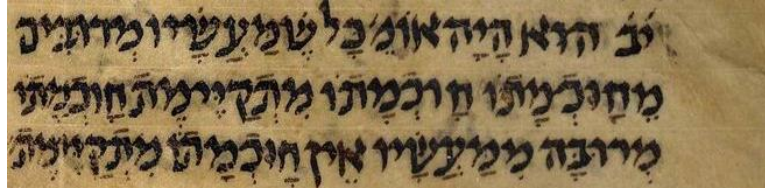 יב הוּא הָיָה אוֹמֵ' כָּל שֶׁמַּעֲשָׂיו מְרוּבִּין
מֵחָוכְמָתוֹ חָוכְמָתוֹ מִתְקַיֶּימֶת חָוכְמָתוֹ
מְרוּבָּה מִמַּעֲשָׂיו אֵין חָוכְמָתוֹ מִתְקַיֶּימֶת